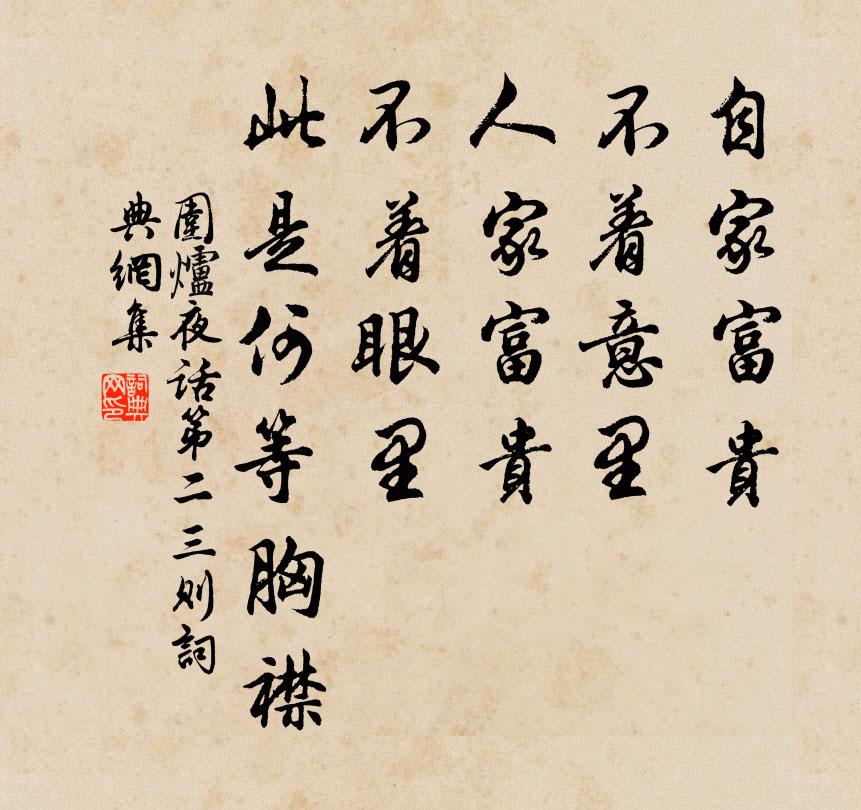 自家富貴
不着意里
人家富貴
不着眼里
此是何等胸襟
圍爐夜話第二三則詞
典網集
詞典
网印